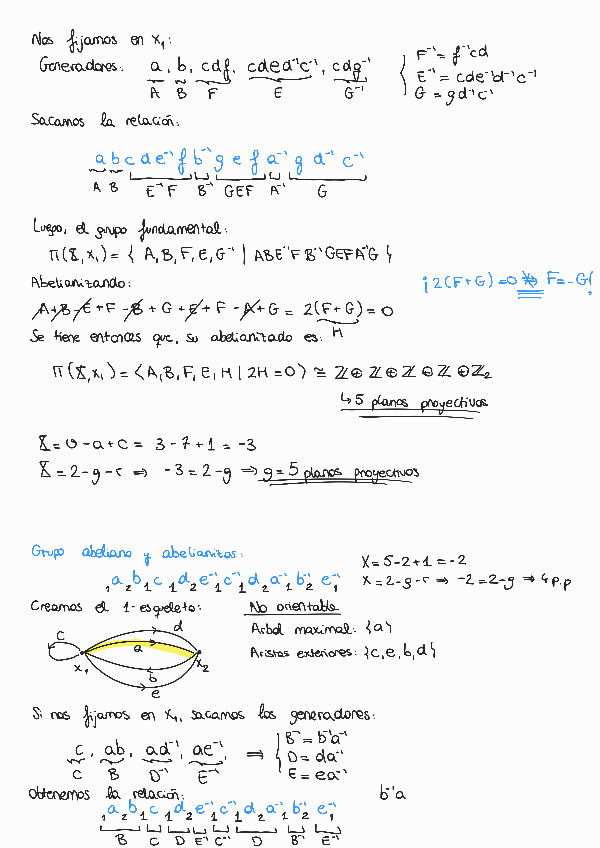 Nos fijamos en x₁:
Generadores: a, b, cdf, cded⁻¹c⁻¹, cdg⁻¹
A B F E G⁻¹
{ F⁻¹ = f⁻¹cd
E⁻¹ = cde⁻¹d⁻¹c⁻¹
G = gd⁻¹c⁻¹
Sacamos la relación:
a b c d e⁻¹ f b⁻¹ g e f a⁻¹ g d⁻¹ c⁻¹
A B E⁻¹F B⁻¹ GEF A⁻¹ G
Luego, el grupo fundamental:
π(X, x₁) = { A, B, F, E, G⁻¹ | ABE⁻¹FB⁻¹GEFA⁻¹G }
Abelianizando:
¡2(F+G) = 0 ⇏ F = -G!
A + B - E + F - B + G + E + F - A + G = 2(F+G) = 0
H
Se tiene entonces que, su abelianizado es:
π(X, x₁) = ⟨A, B, F, E, H | 2H = 0⟩ ≅ ℤ ⊕ ℤ ⊕ ℤ ⊕ ℤ ⊕ ℤ₂
↳ 5 planos proyectivos
X = v - a + c = 3 - 7 + 1 = -3
X = 2 - g - r ⇒ -3 = 2 - g ⇒ g = 5 planos proyectivos
Grupo abeliano y abelianitos:
₁a₂b₁c₁d₂e⁻¹₁c⁻¹₁d₂a⁻¹₁b⁻¹₂e⁻¹₁
X = 5 - 2 + 1 = -2
X = 2 - g - r ⇒ -2 = 2 - g ⇒ 4 p.p
Creamos el 1-esqueleto:
No orientable
Arbol maximal: {a}
Aristas exteriores: {c, e, b, d}
c d a b e x₁ x₂
Si nos fijamos en x₁, sacamos los generadores:
c, ab, ad⁻¹, ae⁻¹, ⇒
C B D⁻¹ E⁻¹
{ B⁻¹ = b⁻¹a⁻¹
D = da⁻¹
E = ea⁻¹
Obtenemos la relación:
b⁻¹a
₁a₂b₁c₁d₂e⁻¹₁c⁻¹₁d₂a⁻¹₁b⁻¹₂e⁻¹₁
B C D E⁻¹ C⁻¹ D B⁻¹ E⁻¹